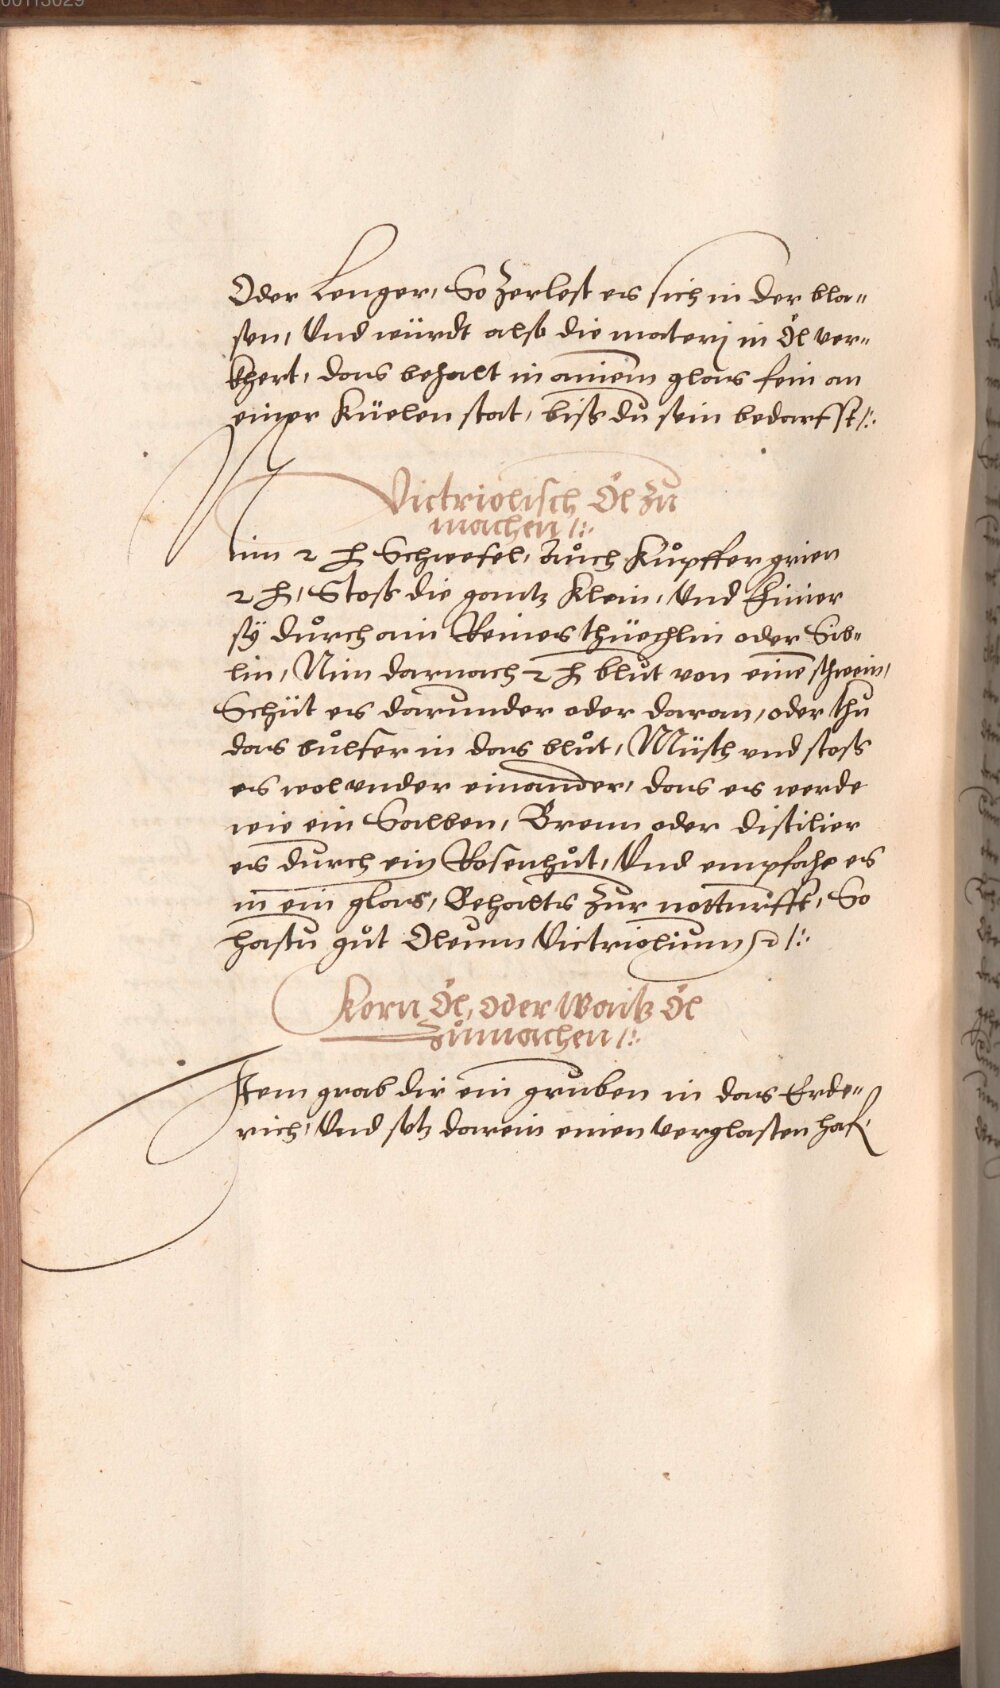 Oder Lenger, So Zerlest es sich in der bla„
sen, Vnd würdt also die materj in Öl ver„
khert, das behalt in ainem glas fein an
einer Küelen stat, biß du sein bedarfst /:
Victriolisch Öl Zu
machen /:
Nim 2 ℔ Schwefel, Auch Kupffer grien
2 ℔, Stoß die gantz Klein, Vnd
sÿ durch ain Reines thüechlin oder Sib„
lin, Nim darnach 2 ℔ blut von eine schwein,
Schüt es darunder oder daran, oder thu
das bulfer in das blut, Müsch vnd stoß
es wol vnder einander, das es werde
wie ein Salben, Brenn oder distilier
es durch ein Rosenhut, Vnd empfahe es
in ein glas, Behalts Zur notturfft, So
hastu gut Oleum Victriolium /:
Korn Öl, oder Waitz Öl
Zumachen /:
Item grab dir ein gruben in das Erde„
rich, Vnd setz darein einen verglasten haf